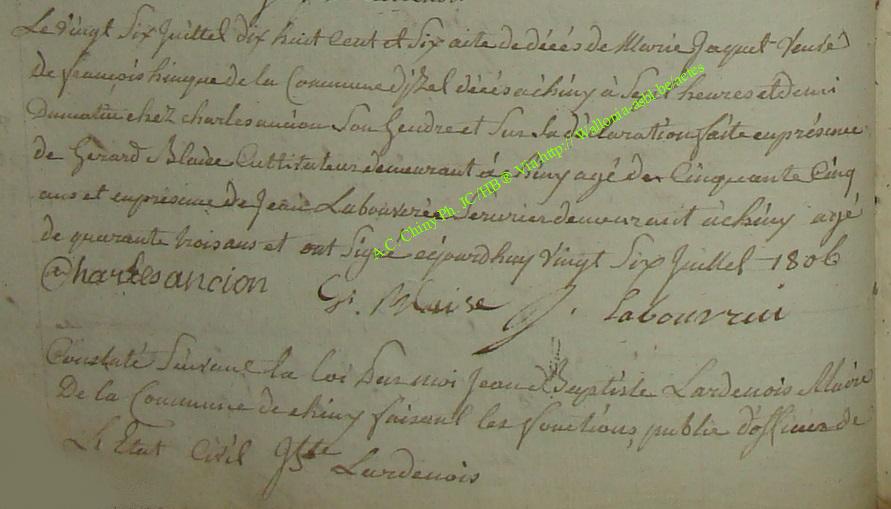 Le vingt Six Juillet dix huit Cent et Six acte de décés de Marie Jaquet Veuve
de françois hinque de la Commune d'jzel décés a chiny à Sept heures et demi
Dumatin chez charles ancion Son Gendre et Sur Sa déclaration faite en présence
de Gerard Blaise Cultivateur demeurant à chiny agé de Cinquante Cinq
ans et enpresence de Jean Labouverie Sérurier demeurant à chiny agé
de quarante trois ans et ont Signé cejourdhuy vingt Six Juillet 1806
Charles ancion G. Blaise J. Labouverie
Constaté Suivant la loi par moi Jean Baptiste Lardenois Maire
De la Commune de chiny faisant les fonctions public d'officier de
L'Etat Civil Jbte Lardenois
A.C. Chiny Ph. JC/HB © Via http://Wallonia-asbl.be/actes